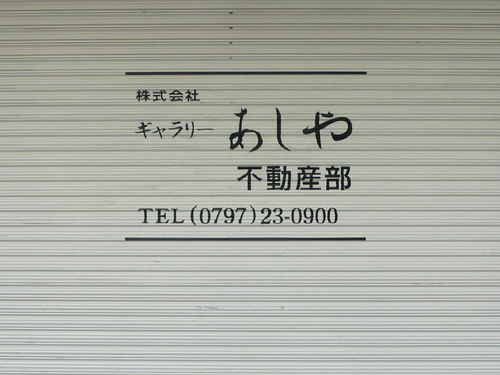 株式会社
ギャラリー あしや
不動産部
TEL(0797)23-0900